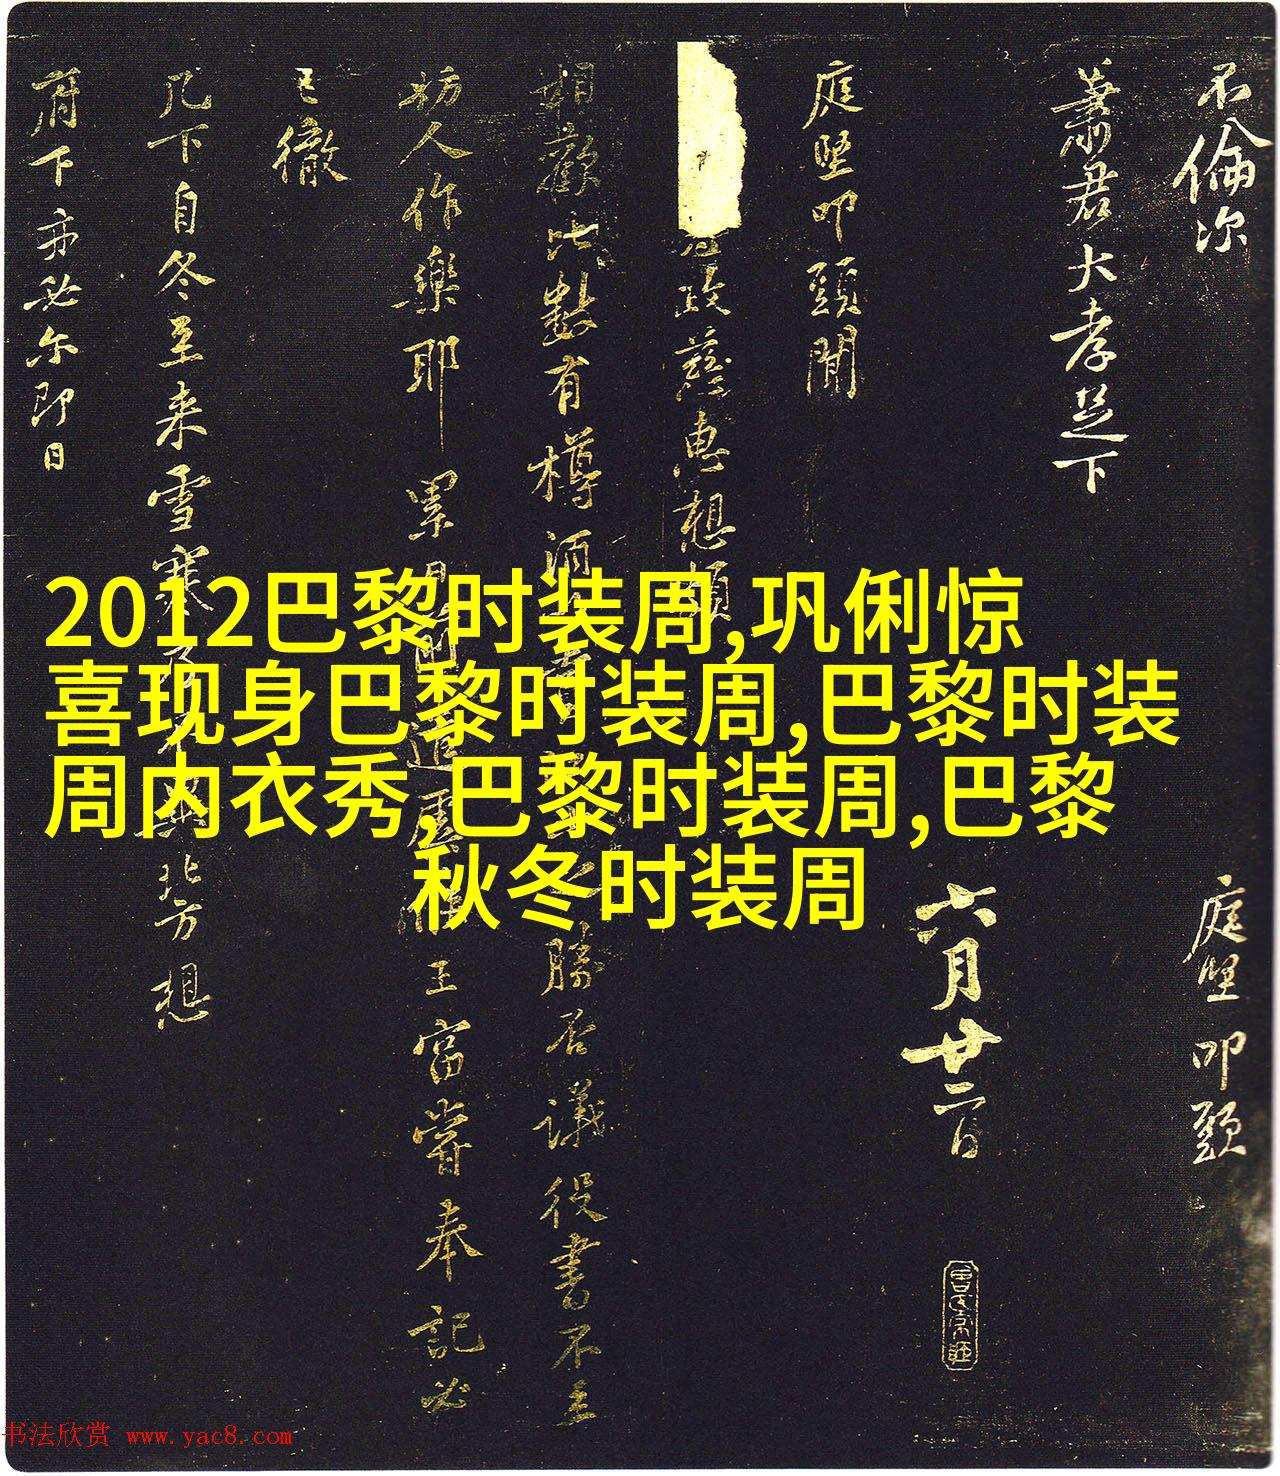 不倫次
庭堅叩頭
蕭君大孝足下
六月廿二日
庭堅叩頭聞
政慈惠想頗
相歡比數有樽酒
勝否議後書不主
初人作樂耶累日
王富嘗奉記必
已徹
凡下自冬至来雪寒
北方想
府下亦必尔即日
2012巴黎时装周,巩俐惊
喜现身巴黎时装周,巴黎时装
周内衣秀,巴黎时装周,巴黎
秋冬时装周
书法欣赏 www.yac8.com